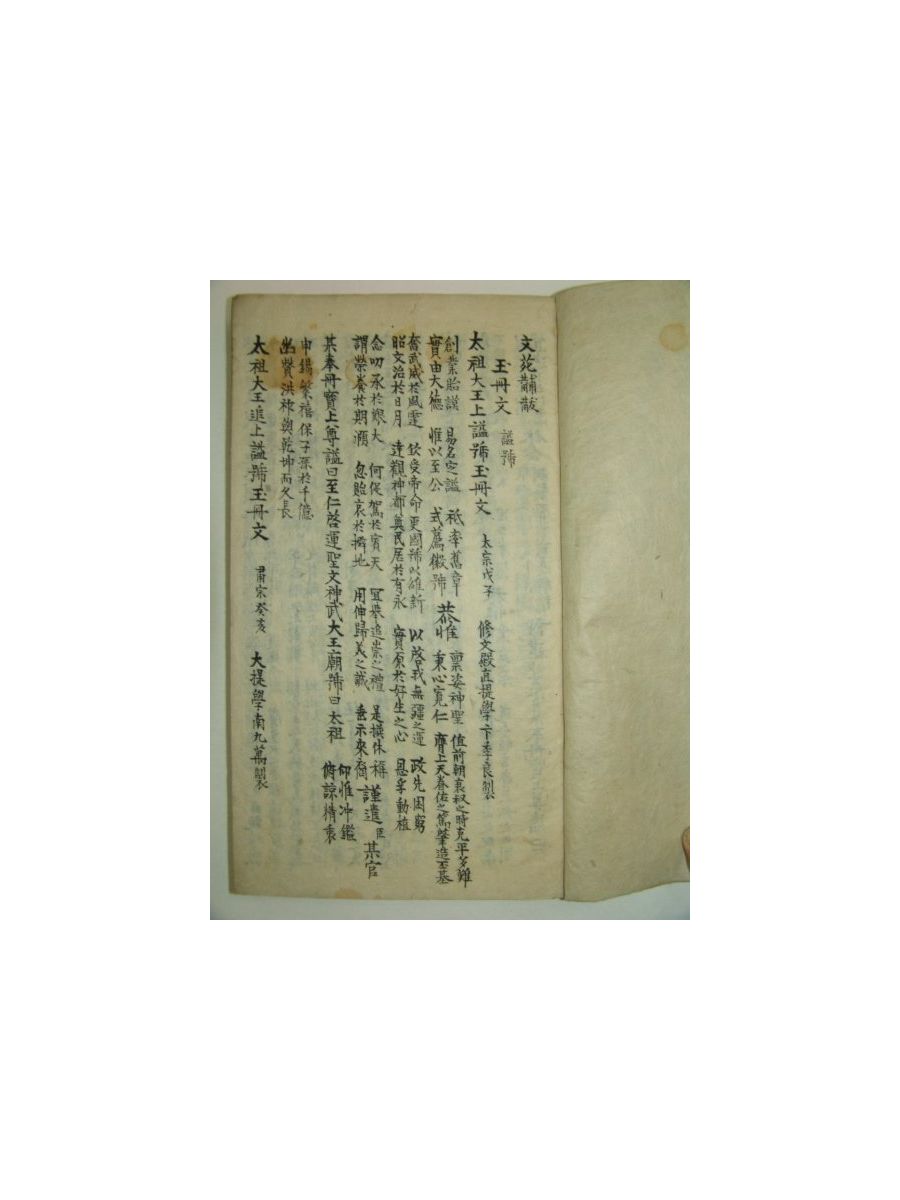 文苑黼黻
玉冊文 謚號
太祖大王上謚號玉冊文 太宗戊子 修文殿直提學卞季良製
創業貽謨 易名定謚 祗率舊章 恭惟 稟姿神聖 值前朝衰叔之時克平多難
實由大德 惟以至公 式薦徽號 秉心寬仁 膺上天眷佑之篤肇造丕基
奮武威於風霆 欽受帝命更國號以維新 以啓我無疆之運 政先困窮
昭文治於日月 達觀神都奠民居於有永 實原於好生之心 恩孚動植
念叨承於艱大 何促駕於賓天 冝擧追崇之禮 是揆休稱
謂榮養於期頤 忽貽哀於擗地 用伸歸美之誠 垂示來裔 謹遣臣某官
某奉冊寶上尊謚曰至仁啓運聖文神武大王廟號曰太祖 仰惟冲鑑
俯諒精衷
申錫繁禧保子孫於千億
幽贊洪祚與乾坤而久長
太祖大王追上謚號玉冊文 肅宗癸亥 大提學南九萬製